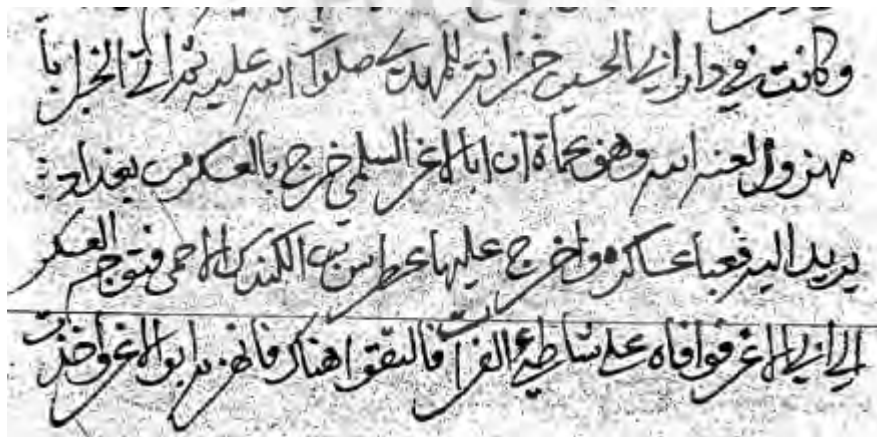 وكانت في دار ابي الحسين خزانة للمهدي صلوات الله عليه ثم اتى الخبر با
مهزول لعنه الله وهو بحماة ان ابا الاغر السلمي خرج بالعسكر من بغداد
يريد اليه فعبا عساكره واخرج عليها عطير الاحمى فتوجه العسكر
الى ابي الاغر فوافاه على شاطىء الفرات فالتقوا هناك فانهزم ابو الاغر واخذت